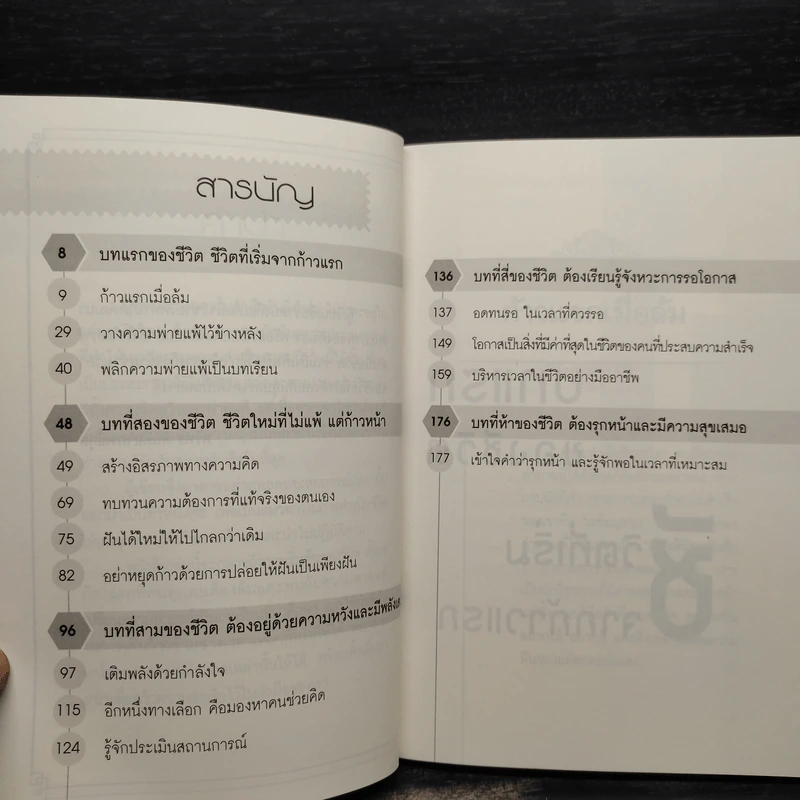 สารบัญ
8 บทแรกของชีวิต ชีวิตที่เริ่มจากก้าวแรก
9 ก้าวแรกเมื่อล้ม
29 วางความพ่ายแพ้ไว้ข้างหลัง
40 พลิกความพ่ายแพ้เป็นบทเรียน
48 บทที่สองของชีวิต ชีวิตใหม่ที่ไม่แพ้ แต่ก้าวหน้า
49 สร้างอิสรภาพทางความคิด
69 ทบทวนความต้องการที่แท้จริงของตนเอง
75 ฝันได้ใหม่ให้ไปไกลกว่าเดิม
82 อย่าหยุดก้าวด้วยการปล่อยให้ฝันเป็นเพียงฝัน
96 บทที่สามของชีวิต ต้องอยู่ด้วยความหวังและมี
97 เติมพลังด้วยกำลังใจ
115 อีกหนึ่งทางเลือก คือมองหาคนช่วยคิด
124 รู้จักประเมินสถานการณ์
136 บทที่สี่ของชีวิต ต้องเรียนรู้จังหวะการรอโอกาส
137 อดทนรอ ในเวลาที่ควรรอ
149 โอกาสเป็นสิ่งที่มีค่าที่สุดในชีวิตของคนที่ประสบความสำเร็จ
159 บริหารเวลาในชีวิตอย่างมืออาชีพ
176 บทที่ห้าของชีวิต ต้องรุกหน้าและมีความสุขเสมอ
177 เข้าใจคำว่ารุกหน้า และรู้จักพอในเวลาที่เหมาะสม